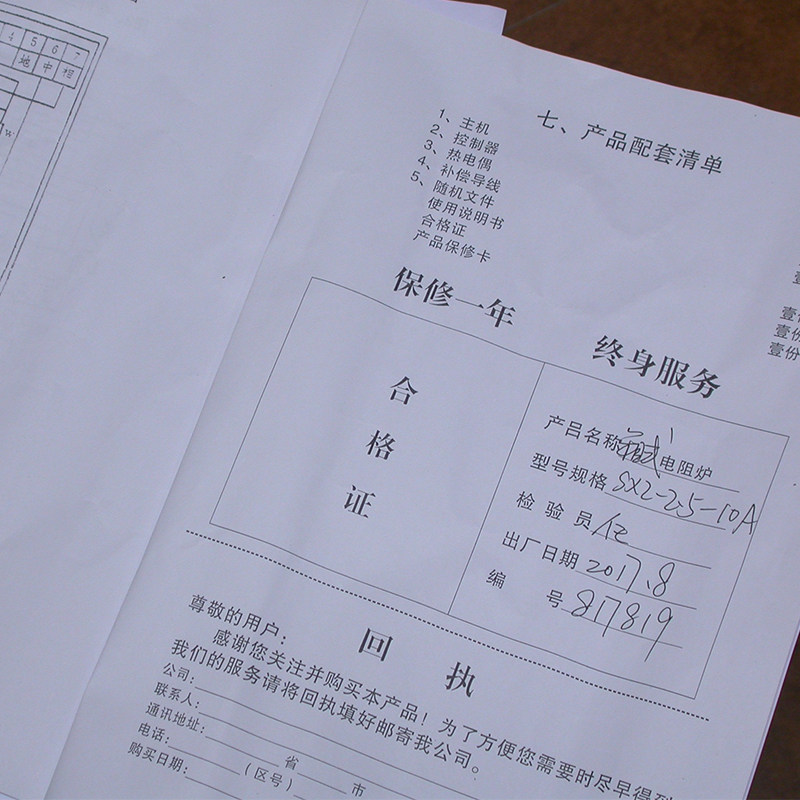 4 5 6 7
地 中 相
w
七、产品配套清单
1、主机
2、控制器
3、热电偶
4、补偿导线
5、随机文件
使用说明书
合格证
产品保修卡
壹份
壹份
保修一年 终身服务
合格证
产品名称 箱式 电阻炉
型号规格 SX2-2.5-10A
检验员
出厂日期 2017.8
编号 817819
回执
尊敬的用户：
感谢您关注并购买本产品！为了方便您需要时尽早得到
我们的服务请将回执填好邮寄我公司。
公司：
联系人：
通讯地址： 省 市
电话： (区号)
购买日期：